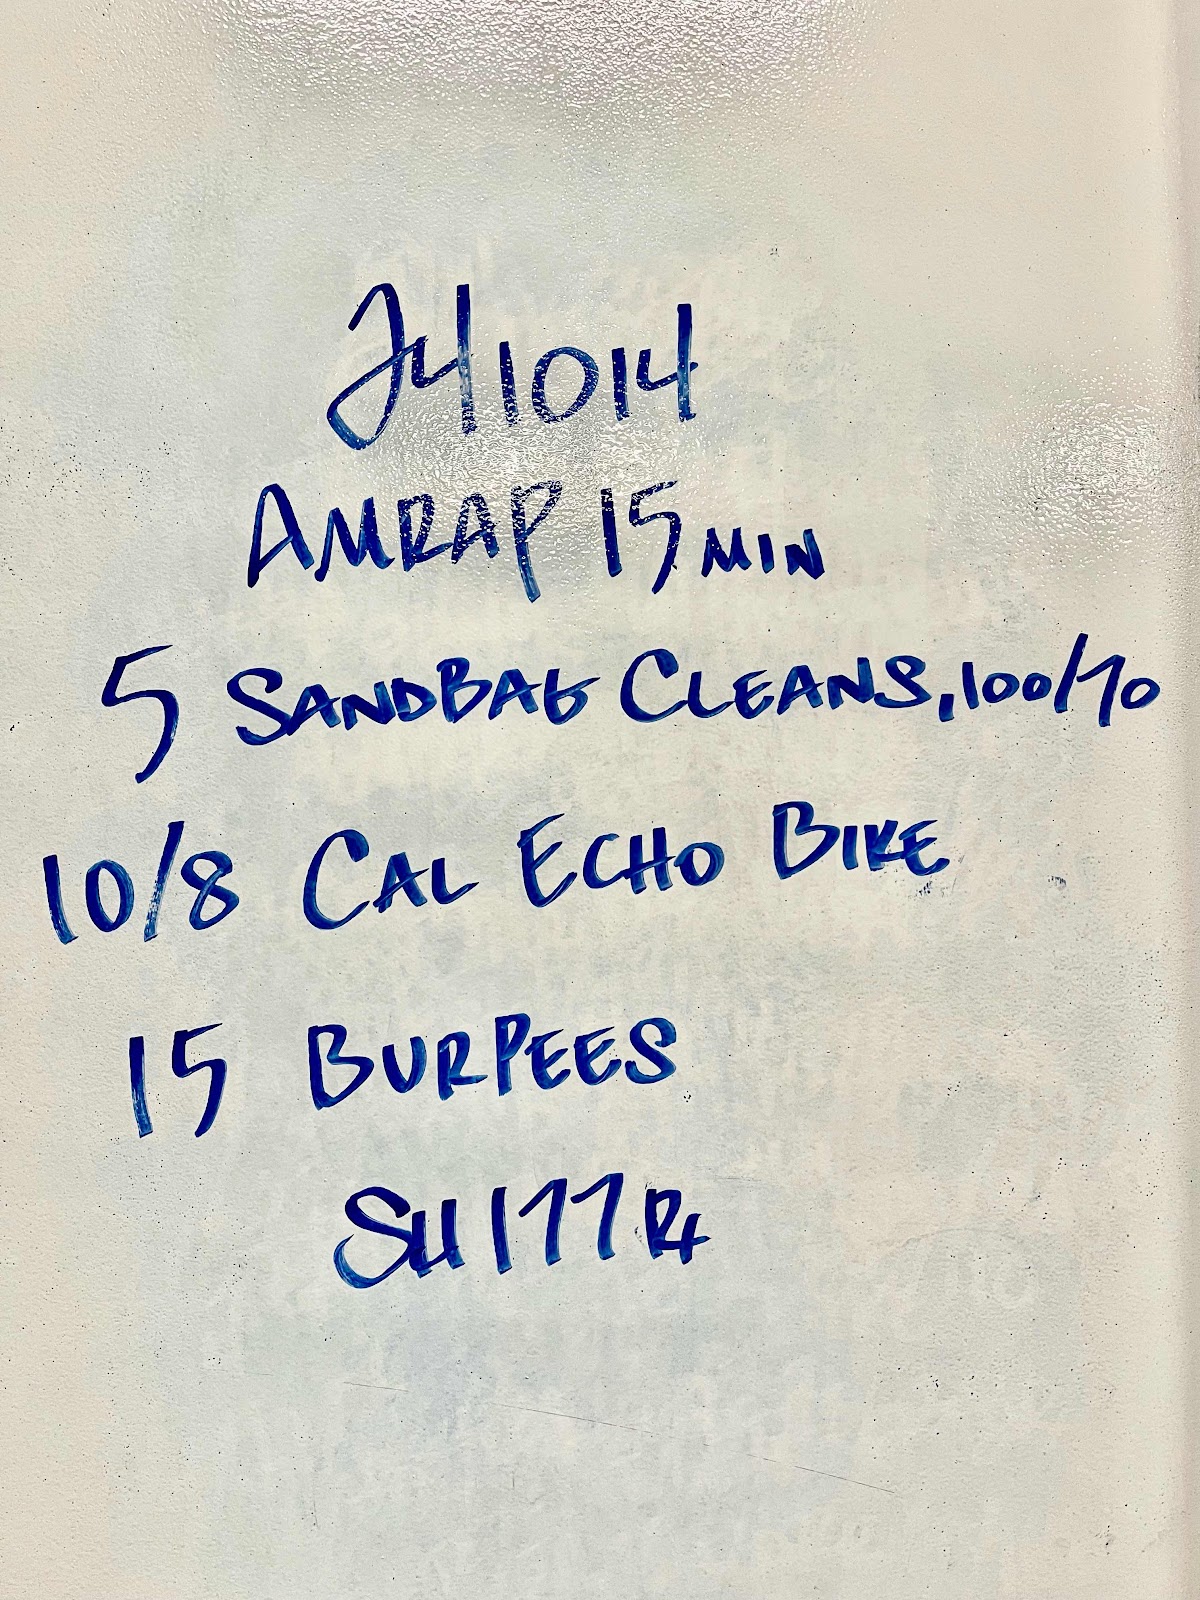 241014
AMRAP 15 MIN
5 SANDBAG CLEANS, 100/70
10/8 CAL ECHO BIKE
15 BURPEES
SU 177 Rx